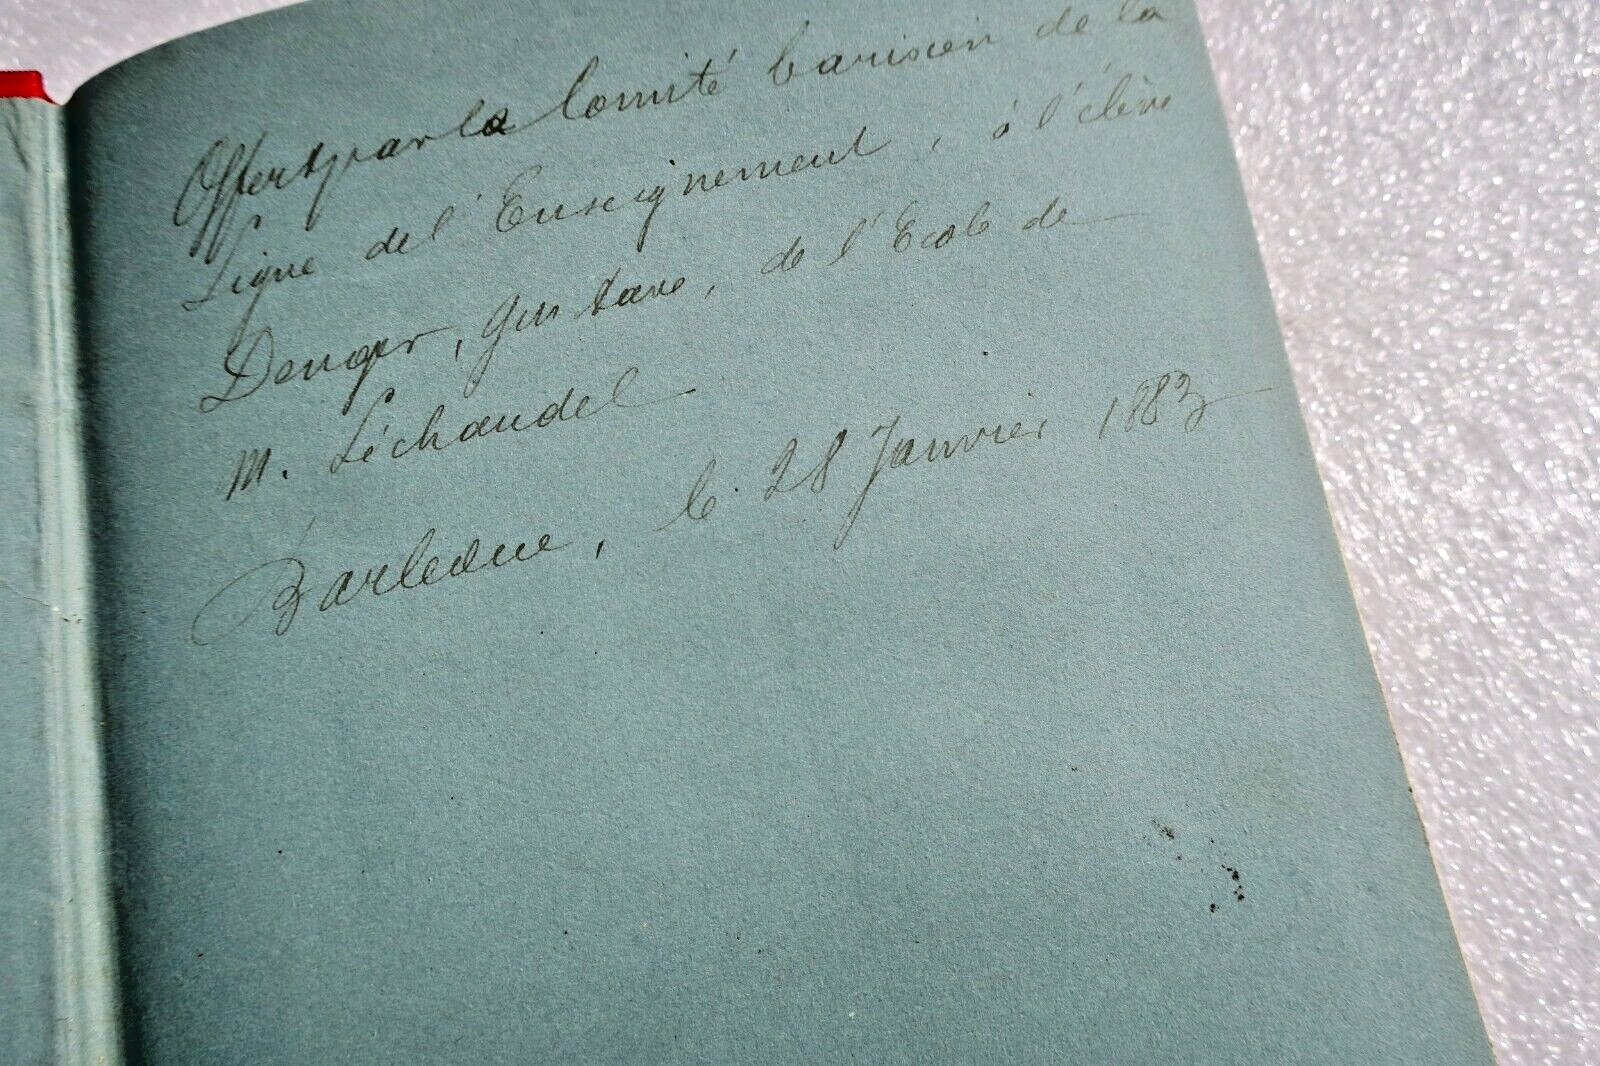 Offert par le Comité barisien de la
Ligue de l'Enseignement, à l'élève
Gustave, de l'Ecole de
M. Léchaudel
Barleduc, le 28 Janvier 1883